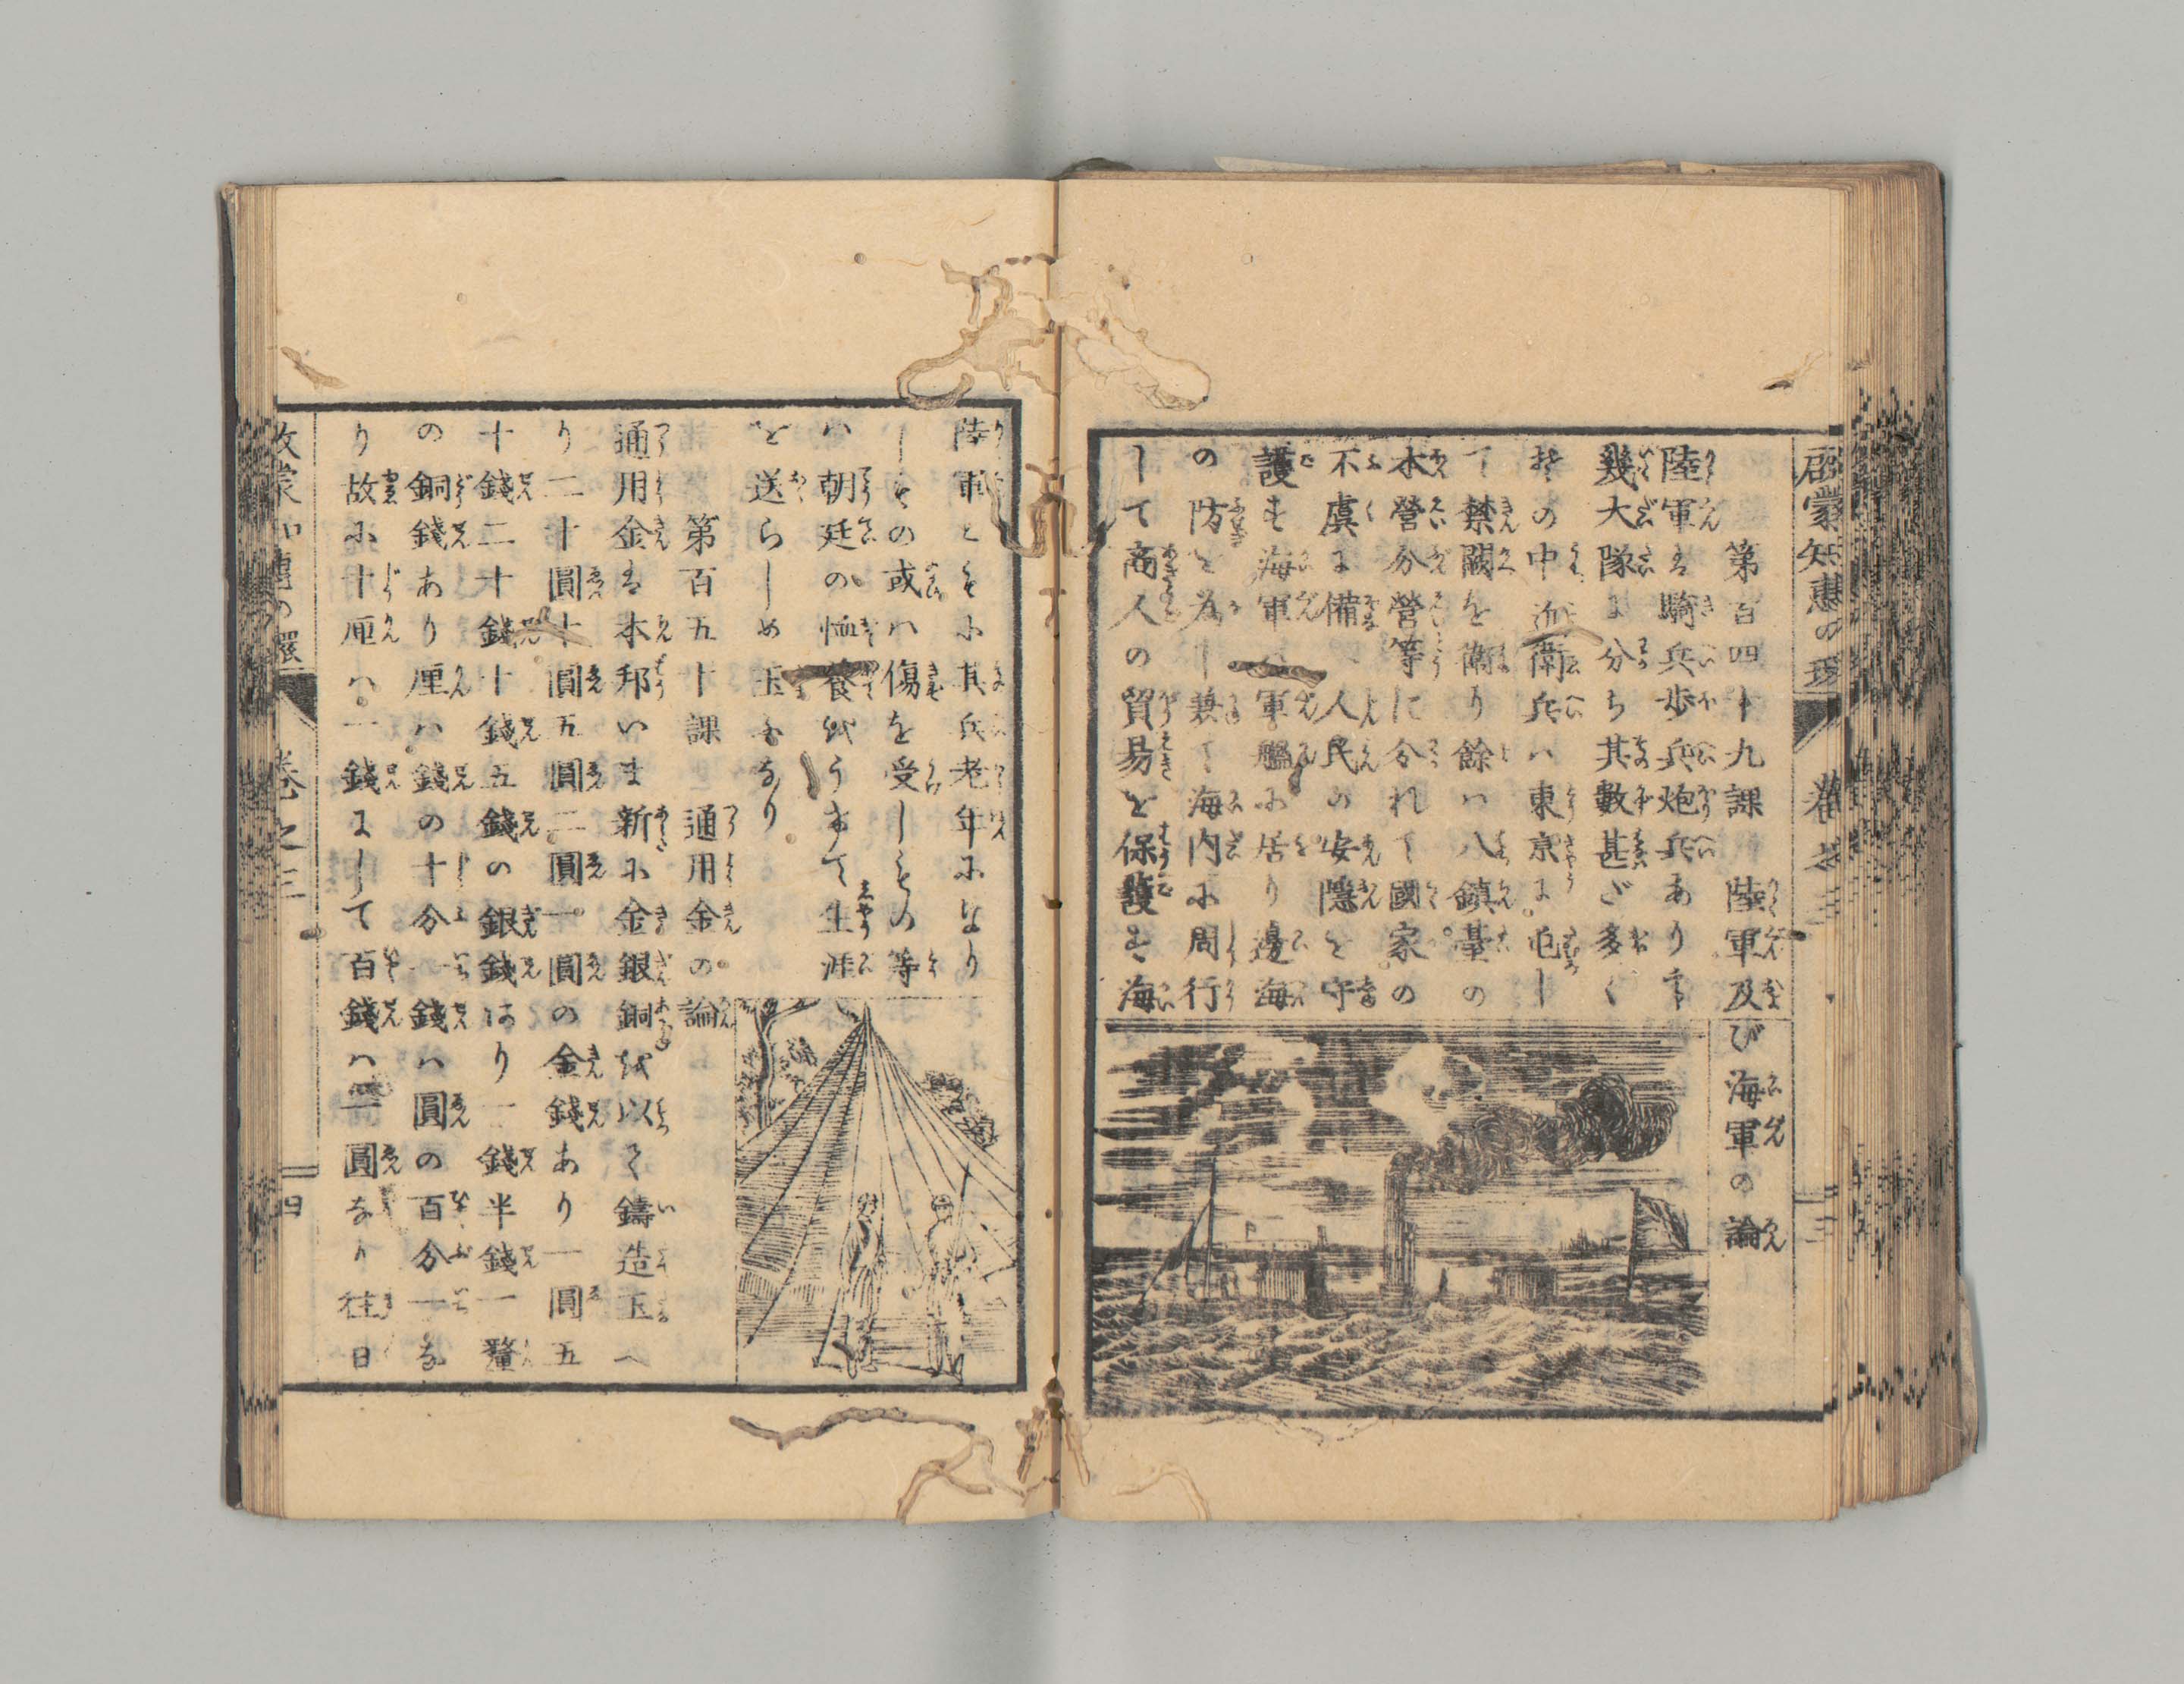 啓蒙知惠の環
卷之三
三
第百四十九課　陸軍及び海軍の論
陸軍は騎兵歩兵炮兵あり常
幾大隊に分ち其數甚ざ多く
其の中近衛兵ハ東京に屯し
て禁闕を衛り餘ハ八鎮臺の
本營分營等に分れて國家の
不虞に備へ人民の安隱を守
護す海軍ハ軍艦に居り邊海
の防を為し兼て海内に周行
して商人の貿易を保護す海
陸軍ともに其兵老年になり
しもの或ハ傷を受しもの等
ハ朝廷の恤養をうけて生涯
を送らしめ玉ふなり
第百五十課　通用金の論
通用金は本邦いま新に金銀銅を以て鑄造玉へ
り二十圓十圓五圓二圓一圓の金錢あり一圓五
十錢二十錢十錢五錢の銀錢あり一錢半錢一釐
の銅錢あり厘ハ錢の十分一錢ハ圓の百分一な
り故に十厘ハ一錢にして百錢ハ一圓なり往日
啓蒙知惠の環
卷之三
四